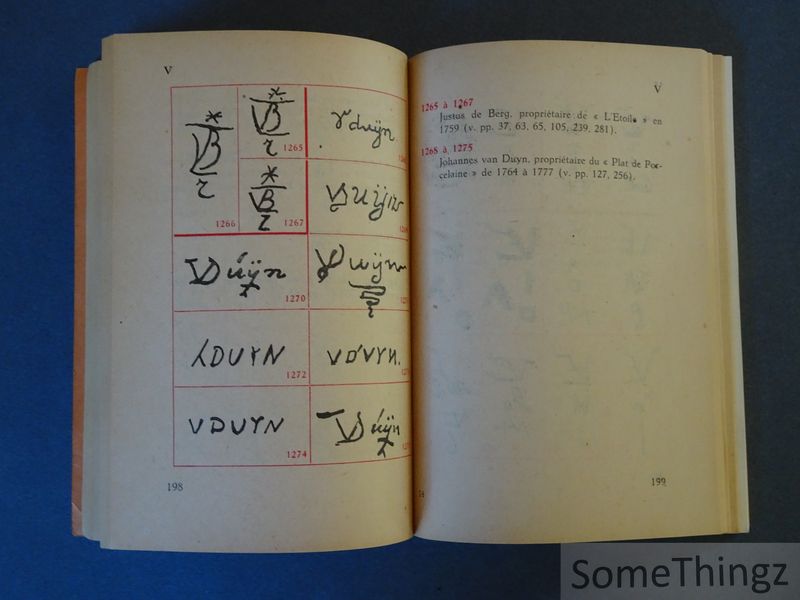 V
*
VB
z
1266
*
VB
z
1265
*
VB
z
1267
vduÿn.
Duÿn
1270
1272
VDUYN
V D'VYN.
VDUYN
1274
198
V
1265 à 1267
Justus de Berg, propriétaire de « L'Etoile » en
1759 (v. pp. 37, 63, 65, 105, 239, 281).
1268 à 1275
Johannes van Duyn, propriétaire du « Plat de Por-
celaine » de 1764 à 1777 (v. pp. 127, 256).
199
SomeThingz